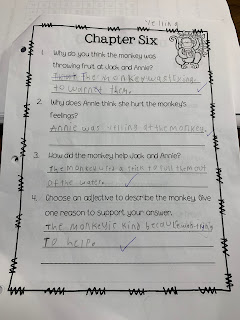 yelling
Chapter Six
1. Why do you think the monkey was
throwing fruit at Jack and Annie?
The monkey was trying
to warn them.
2. Why does Annie think she hurt the monkey's
feelings?
Annie was yelling at the monkey.
3. How did the monkey help Jack and Annie?
The monkey to pull them out
of the water.
4. Choose an adjective to describe the monkey. Give
one reason to support your answer.
The monkey is kind
To help.